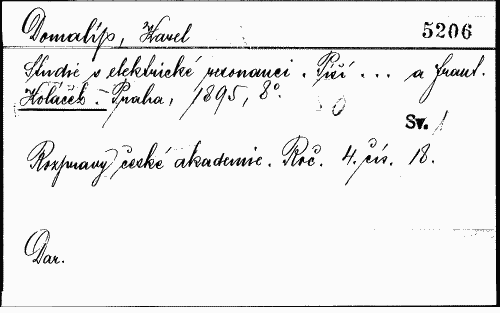 Domalíp, Karel 5206
Studie o elektrické resonanci. Píší ... a Frant.
Koláček. - Praha, 1895, 8°.
0
Sv. 1
Rozpravy české akademie. Roč. 4. čís. 18.
Dar.